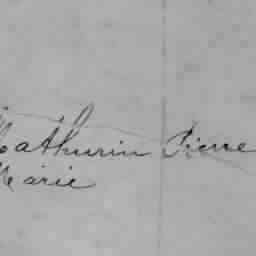 Mathurin Pierre
Marie